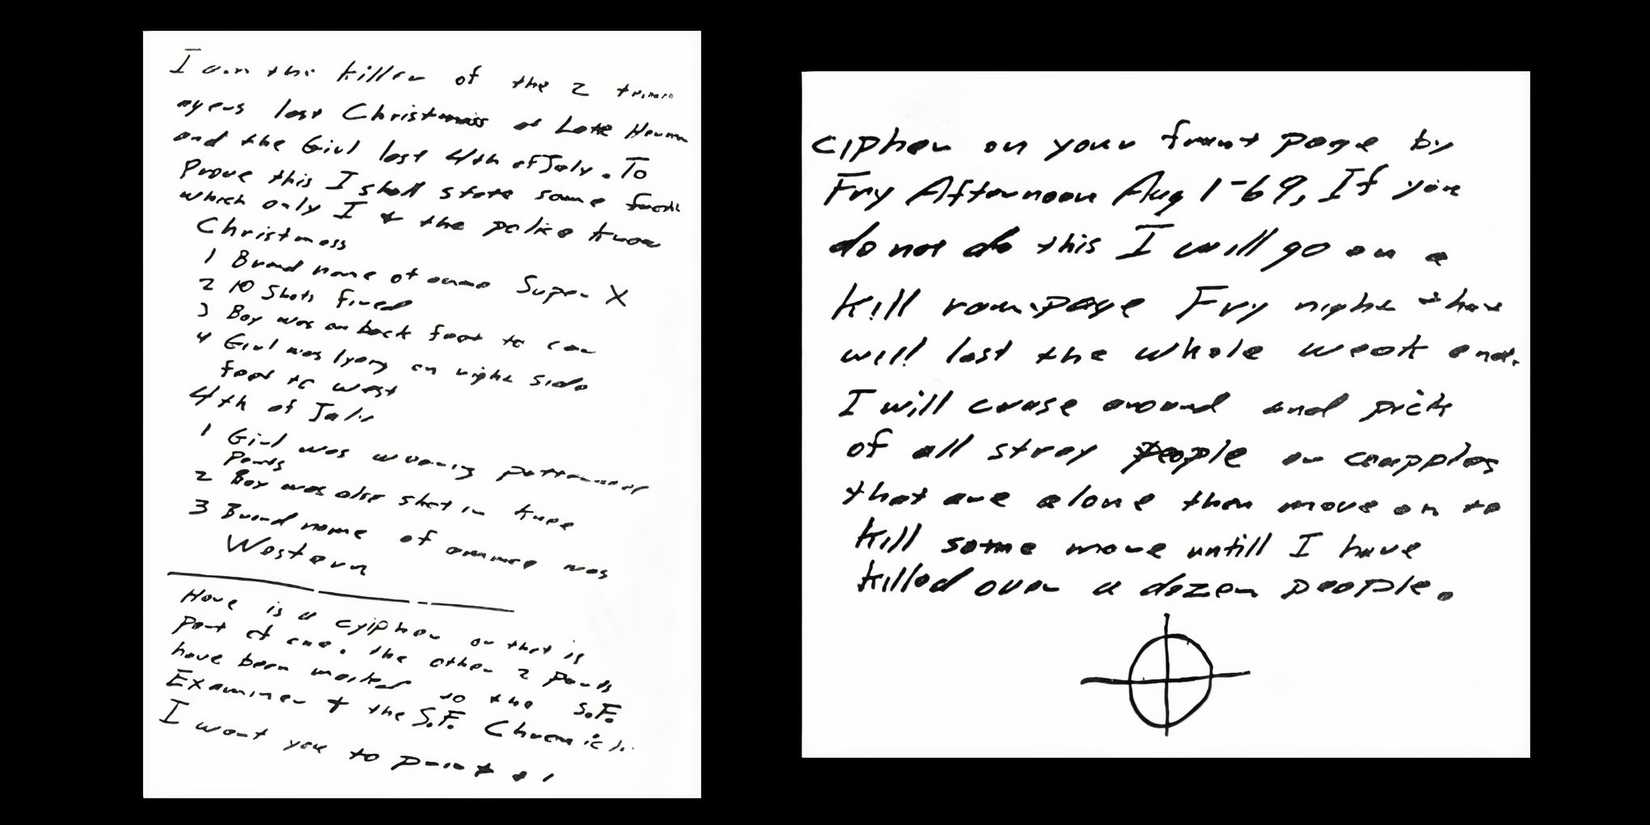 I am the killer of the 2 teen
agers last Christmass at Lake Herman
and the Girl last 4th of July. To
Prove this I shall state some facts
which only I + the police know
Christmass
1 Brand name of ammo Super X
2 10 Shots fired
3 Boy was on back feet to car
4 Girl was lyeing on right side
feet to west
4th of July
1 Girl was wearing patterned
pants
2 Boy was also shot in knee
3 Brand name of ammo was
Western
Here is a cyipher or that is
part of one. the other 2 parts
have been mailed to the S.F.
Examiner + the S.F. Chronicle
I want you to print this
cipher on your frunt page by
Fry Afternoon Aug 1-69, If you
do not do this I will go on a
kill rampage Fry night that
will last the whole week end.
I will cruse around and pick
of all stray people or coupples
that are alone then move on to
kill some more untill I have
killed over a dozen people.